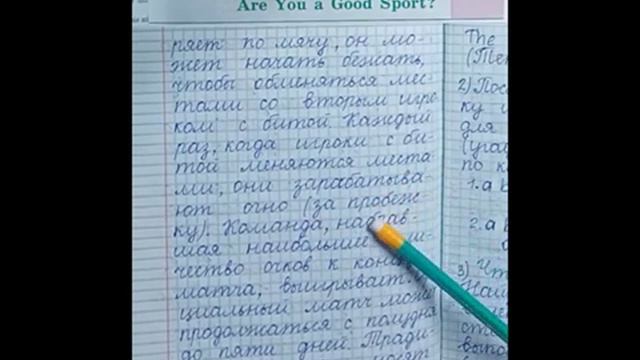 Are You a Good Sport?
ряет по мячу, он мо-
жет начать бежать,
чтобы обменяться мес-
тами со вторым игро-
ком с битой. Каждый
раз, когда игроки с би-
той меняются места-
ми, они зарабатыва-
ют очко (за пробеж-
ку). Команда, набрав-
шая наибольшее
чество очков к
матча, выигрывает.
циальный матч может
продолжаться с полудня
до пяти дней. Тради-
The
2) Пос
ку и
для
по к
1. a b
2. a b
3) Что